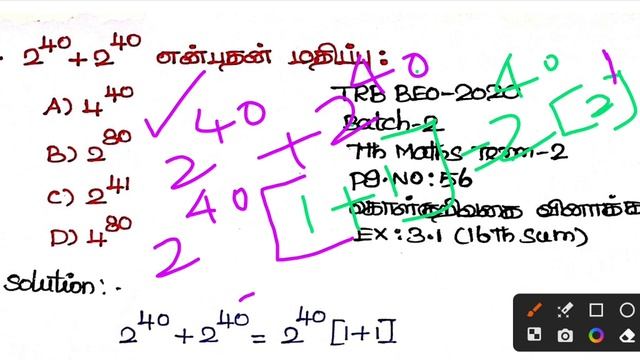 2⁴⁰ + 2⁴⁰ என்பதன் மதிப்பு :
A) 4⁴⁰
B) 2⁸⁰
C) 2⁴¹
D) 4⁸⁰
TRB BEO-2020
Batch-2
7th Maths Term-2
Pg.NO:56
கொள்குறிவகை வினாக்க
EX:3.1 (16th Sum)
2⁴⁰ + 2⁴⁰
2⁴⁰ [1+1] = 2⁴⁰ [2]¹
Solution:-
2⁴⁰ + 2⁴⁰ = 2⁴⁰ [1+1]